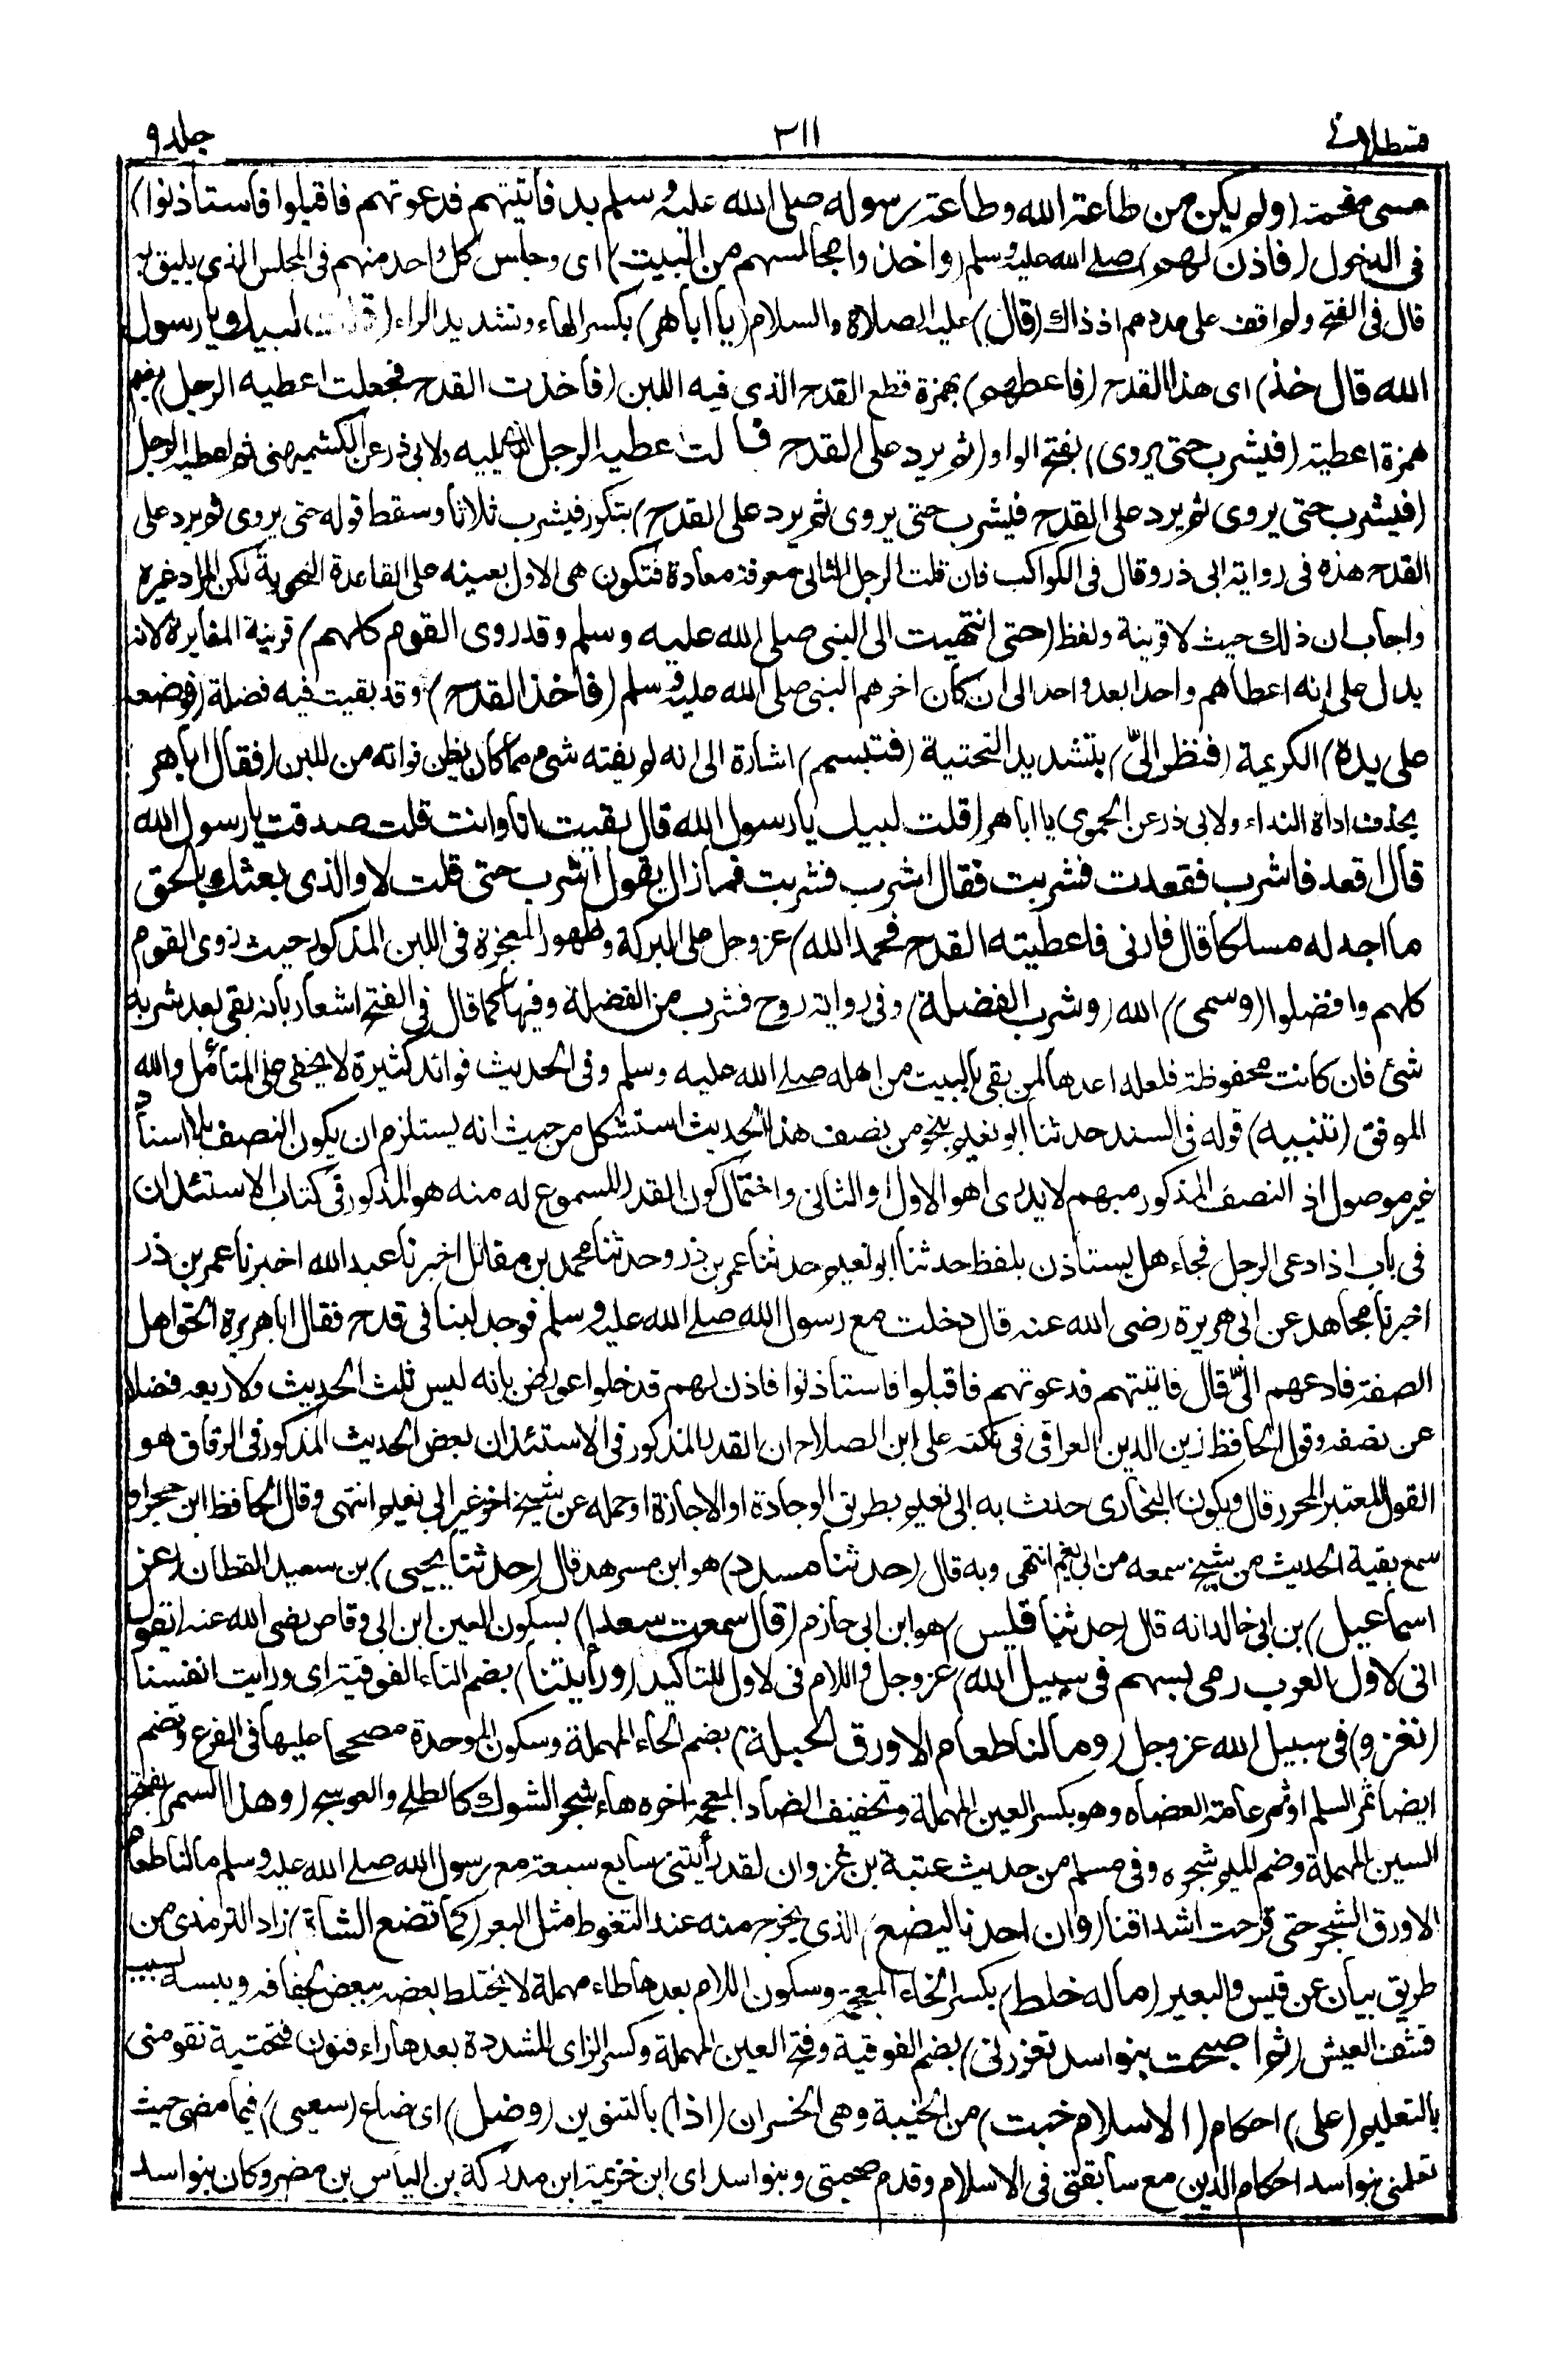 قسطلانی ٣١١ جلد ٩
عسى مقحمة (ولم يكن من طاعة الله وطاعة رسوله صلى الله عليه وسلم بد فأتيتهم فدعوتهم فاقبلوا فاستأذنوا)
فى الدخول (فاذن لهم) صلى الله عليه وسلم (واخذوا مجالسهم من البيت) اى وجلس كل واحد منهم فى المجلس الذى يليق به
قال فى الفتح ولم اقف على عددهم اذ ذاك (قال) عليه الصلاة والسلام (يا ابا هر) بكسر الهاء وتشديد الراء (قلت لبيك يا رسول
الله قال خذ) اى هذا القدح (فاعطهم) بهمزة قطع القدح الذى فيه اللبن (فاخذت القدح فجعلت اعطيه الرجل) بضم
همزة اعطيه (فيشرب حتى يروى) بفتح الواو (ثم يرد على القدح فا لت اعطيه الرجل الذى يليه ولابى ذر عن الكشميهنى ثم اعطيه الرجل
(فيشرب حتى يروى ثم يرد على القدح فيشرب حتى يروى ثم يرد على القدح) بتكرر فيشرب ثلاثا وسقط قوله حتى يروى ثم يرد على
القدح هذه فى رواية ابى ذر وقال فى الكواكب فان قلت الرجل الثانى معرفة معادة فتكون هى الاول بعينه على القاعدة النحوية لكن المراد غيره
واجاب ان ذلك حيث لا قرينة ولفظ (حتى انتهيت الى النبى صلى الله عليه وسلم وقد روى القوم كلهم) قرينة المغايرة لانه
يدل على انه اعطاهم واحدا بعد واحد الى ان كان اخرهم النبى صلى الله عليه وسلم (فاخذ القدح) وقد بقيت فيه فضلة (فوضعه
على يده) الكريمة (فنظر الىّ) بتشديد التحتية (فتبسم) اشارة الى انه لم يفته شىء مما كان يظن فواته من اللبن (فقال ابا هر
بحذف اداة النداء ولابى ذر عن الحموى يا ابا هر (قلت لبيك يا رسول الله قال بقيت انا وانت قلت صدقت يا رسول الله
قال اقعد فاشرب فقعدت فشربت فقال اشرب فشربت فما زال يقول اشرب حتى قلت لا والذى بعثك بالحق
ما اجد له مسلكا قال فارنى فاعطيته القدح فحمد الله) عز وجل على البركة وظهور المعجزة فى اللبن المذكور حيث روى القوم
كلهم وافضلوا (وسمى) الله (وشرب الفضلة) وفى رواية روح فشرب من الفضلة وفيها كما قال فى الفتح اشعار بانه بقى بعد شربه
شئ فان كانت محفوظة فلعله اعدها لمن بقى بالبيت من اهله صلى الله عليه وسلم وفى الحديث فوائد كثيرة لا يخفى على المتأمل والله
الموفق (تنبيه) قوله فى السند حدثنا ابو نعيم بنحو من نصف هذا الحديث استشكل من حيث انه يستلزم ان يكون النصف بلا اسناد
غير موصول اذ النصف المذكور مبهم لا يدرى اهو الاول او الثانى واحتمال كون القدر المسموع له منه هو المذكور فى كتاب الاستئذان
فى باب اذا دعى الرجل فجاء هل يستاذن بلفظ حدثنا ابو نعيم حدثنا عمر بن ذر وحدثنا محمد بن مقاتل اخبرنا عبد الله اخبرنا عمر بن ذر
اخبرنا مجاهد عن ابى هريرة رضى الله عنه قال دخلت مع رسول الله صلى الله عليه وسلم فوجد لبنا فى قدح فقال ابا هريرة الحق اهل
الصفة فادعهم الىّ قال فاتيتهم فدعوتهم فاقبلوا فاستاذنوا فاذن لهم فدخلوا عورض بانه ليس ثلث الحديث ولا ربعه فضلا
عن نصفه وقول الحافظ زين الدين العراقى فى نكته على ابن الصلاح ان القدر المذكور فى الاستئذان بعض الحديث المذكور فى الرقاق هو
القول المعتبر المحرر قال ويكون البخارى حدث به ابى نعيم بطريق الوجادة او الاجازة او حمله عن شيخ اخر غير ابى نعيم انتهى وقال الحافظ ابن حجر او
سمع بقية الحديث من شيخ سمعه من ابى نعيم انتهى وبه قال (حدثنا مسدد) هو ابن مسرهد قال (حدثنا يحيى) بن سعيد القطان (عن
اسماعيل) بن ابى خالد انه قال (حدثنا قيس) هو ابن ابى حازم (قال سمعت سعدا) بسكون العين ابن ابى وقاص رضى الله عنه (يقول
انى لاول العرب رمى بسهم فى سبيل الله) عز وجل واللام فى لاول للتاكيد (ورأيتنا) بضم التاء الفوقية اى ورايت انفسنا
(نغزو) فى سبيل الله عز وجل (وما لنا طعام الا ورق الحبلة) بضم الحاء المهملة وسكون الموحدة مصححا عليها فى الفرع وتضم
ايضا ثمر السلم او ثمر عامة العضاه وهو بكسر العين المهملة وتخفيف الضاد المعجمة اخره هاء شجر الشوك كالطلح والعوسج (وهذا السمر) بفتح
السين المهملة وضم الميم شجره وفى مسلم من حديث عتبة بن غزوان لقد رأيتنى سابع سبعة مع رسول الله صلى الله عليه وسلم ما لنا طعام
الا ورق الشجر حتى قرحت اشداقنا (وان احدنا ليضع) الذى يخرج منه عند التغوط مثل البعر (كما تضع الشاة) زاد الترمذى من
طريق بيان عن قيس والبعير (ما له خلط) بكسر الخاء المعجمة وسكون اللام بعدها طاء مهملة لا يختلط بعضه ببعض لجفافه ويبسه بسبب
قشف العيش (ثم اصبحت بنو اسد تعزرنى) بضم الفوقية وفتح العين المهملة وكسر الزاى المشددة بعدها راء فنون فتحتية تقومنى
بالتعليم (على) احكام (الاسلام خبت) من الخيبة وهى الخسران (اذا) بالتنوين (وضل) اى ضاع (سعيى) فيما مضى حيث
تعلمنى بنو اسد احكام الدين مع سابقتى فى الاسلام وقدم صحبتى وبنو اسد اى ابن خزيمة ابن مدركة بن الياس بن مضر وكان بنو اسد